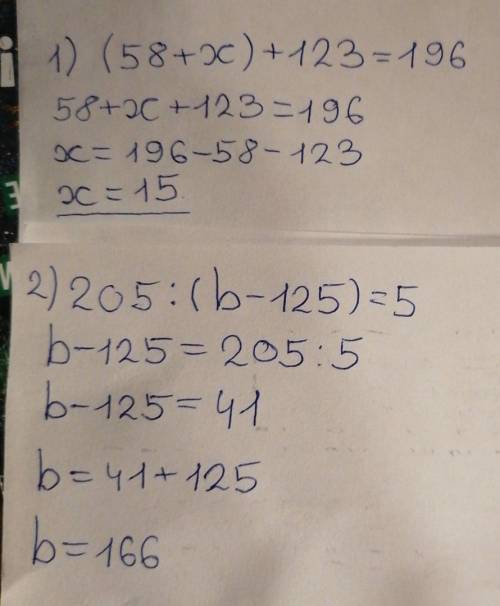 1) (58+x)+123=196
58+x+123=196
x=196-58-123
x=15
2) 205:(b-125)=5
b-125=205:5
b-125=41
b=41+125
b=166